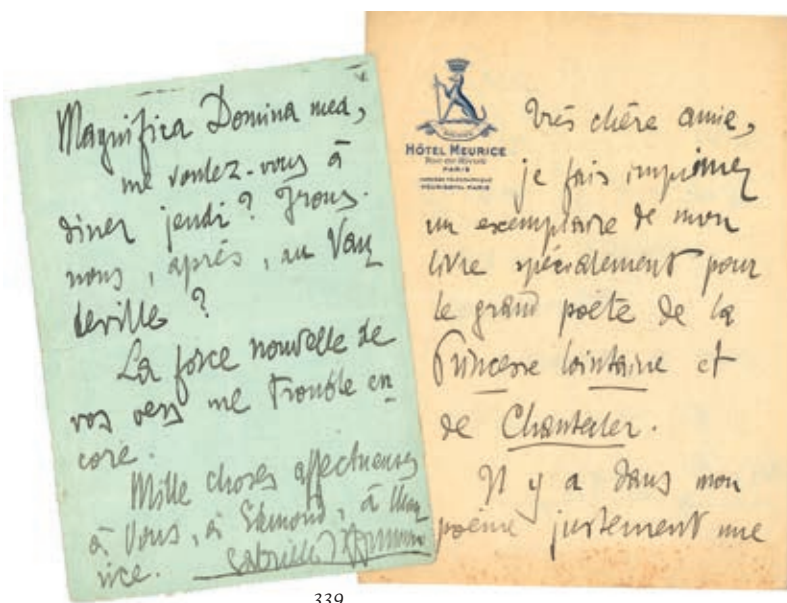 Magnifica Domina mea,
me voulez-vous à
diner jeudi? Irons-
nous, après, au Vau
deville?
La force nouvelle de
vos vers me trouble en
core.
Mille choses affectueuses
à Vous, à Edmond, à Mau
rice. Gabriele d'Annunzio
HÔTEL MEURICE
Rue de Rivoli
PARIS
ADRESSE TÉLÉGRAPHIQUE
MEURISOTEL PARIS
Très chère amie,
je fais imprimer
un exemplaire de mon
livre spécialement pour
le grand poète de la
Princesse lointaine et
de Chantecler.
Il y a dans mon
poème justement une
339